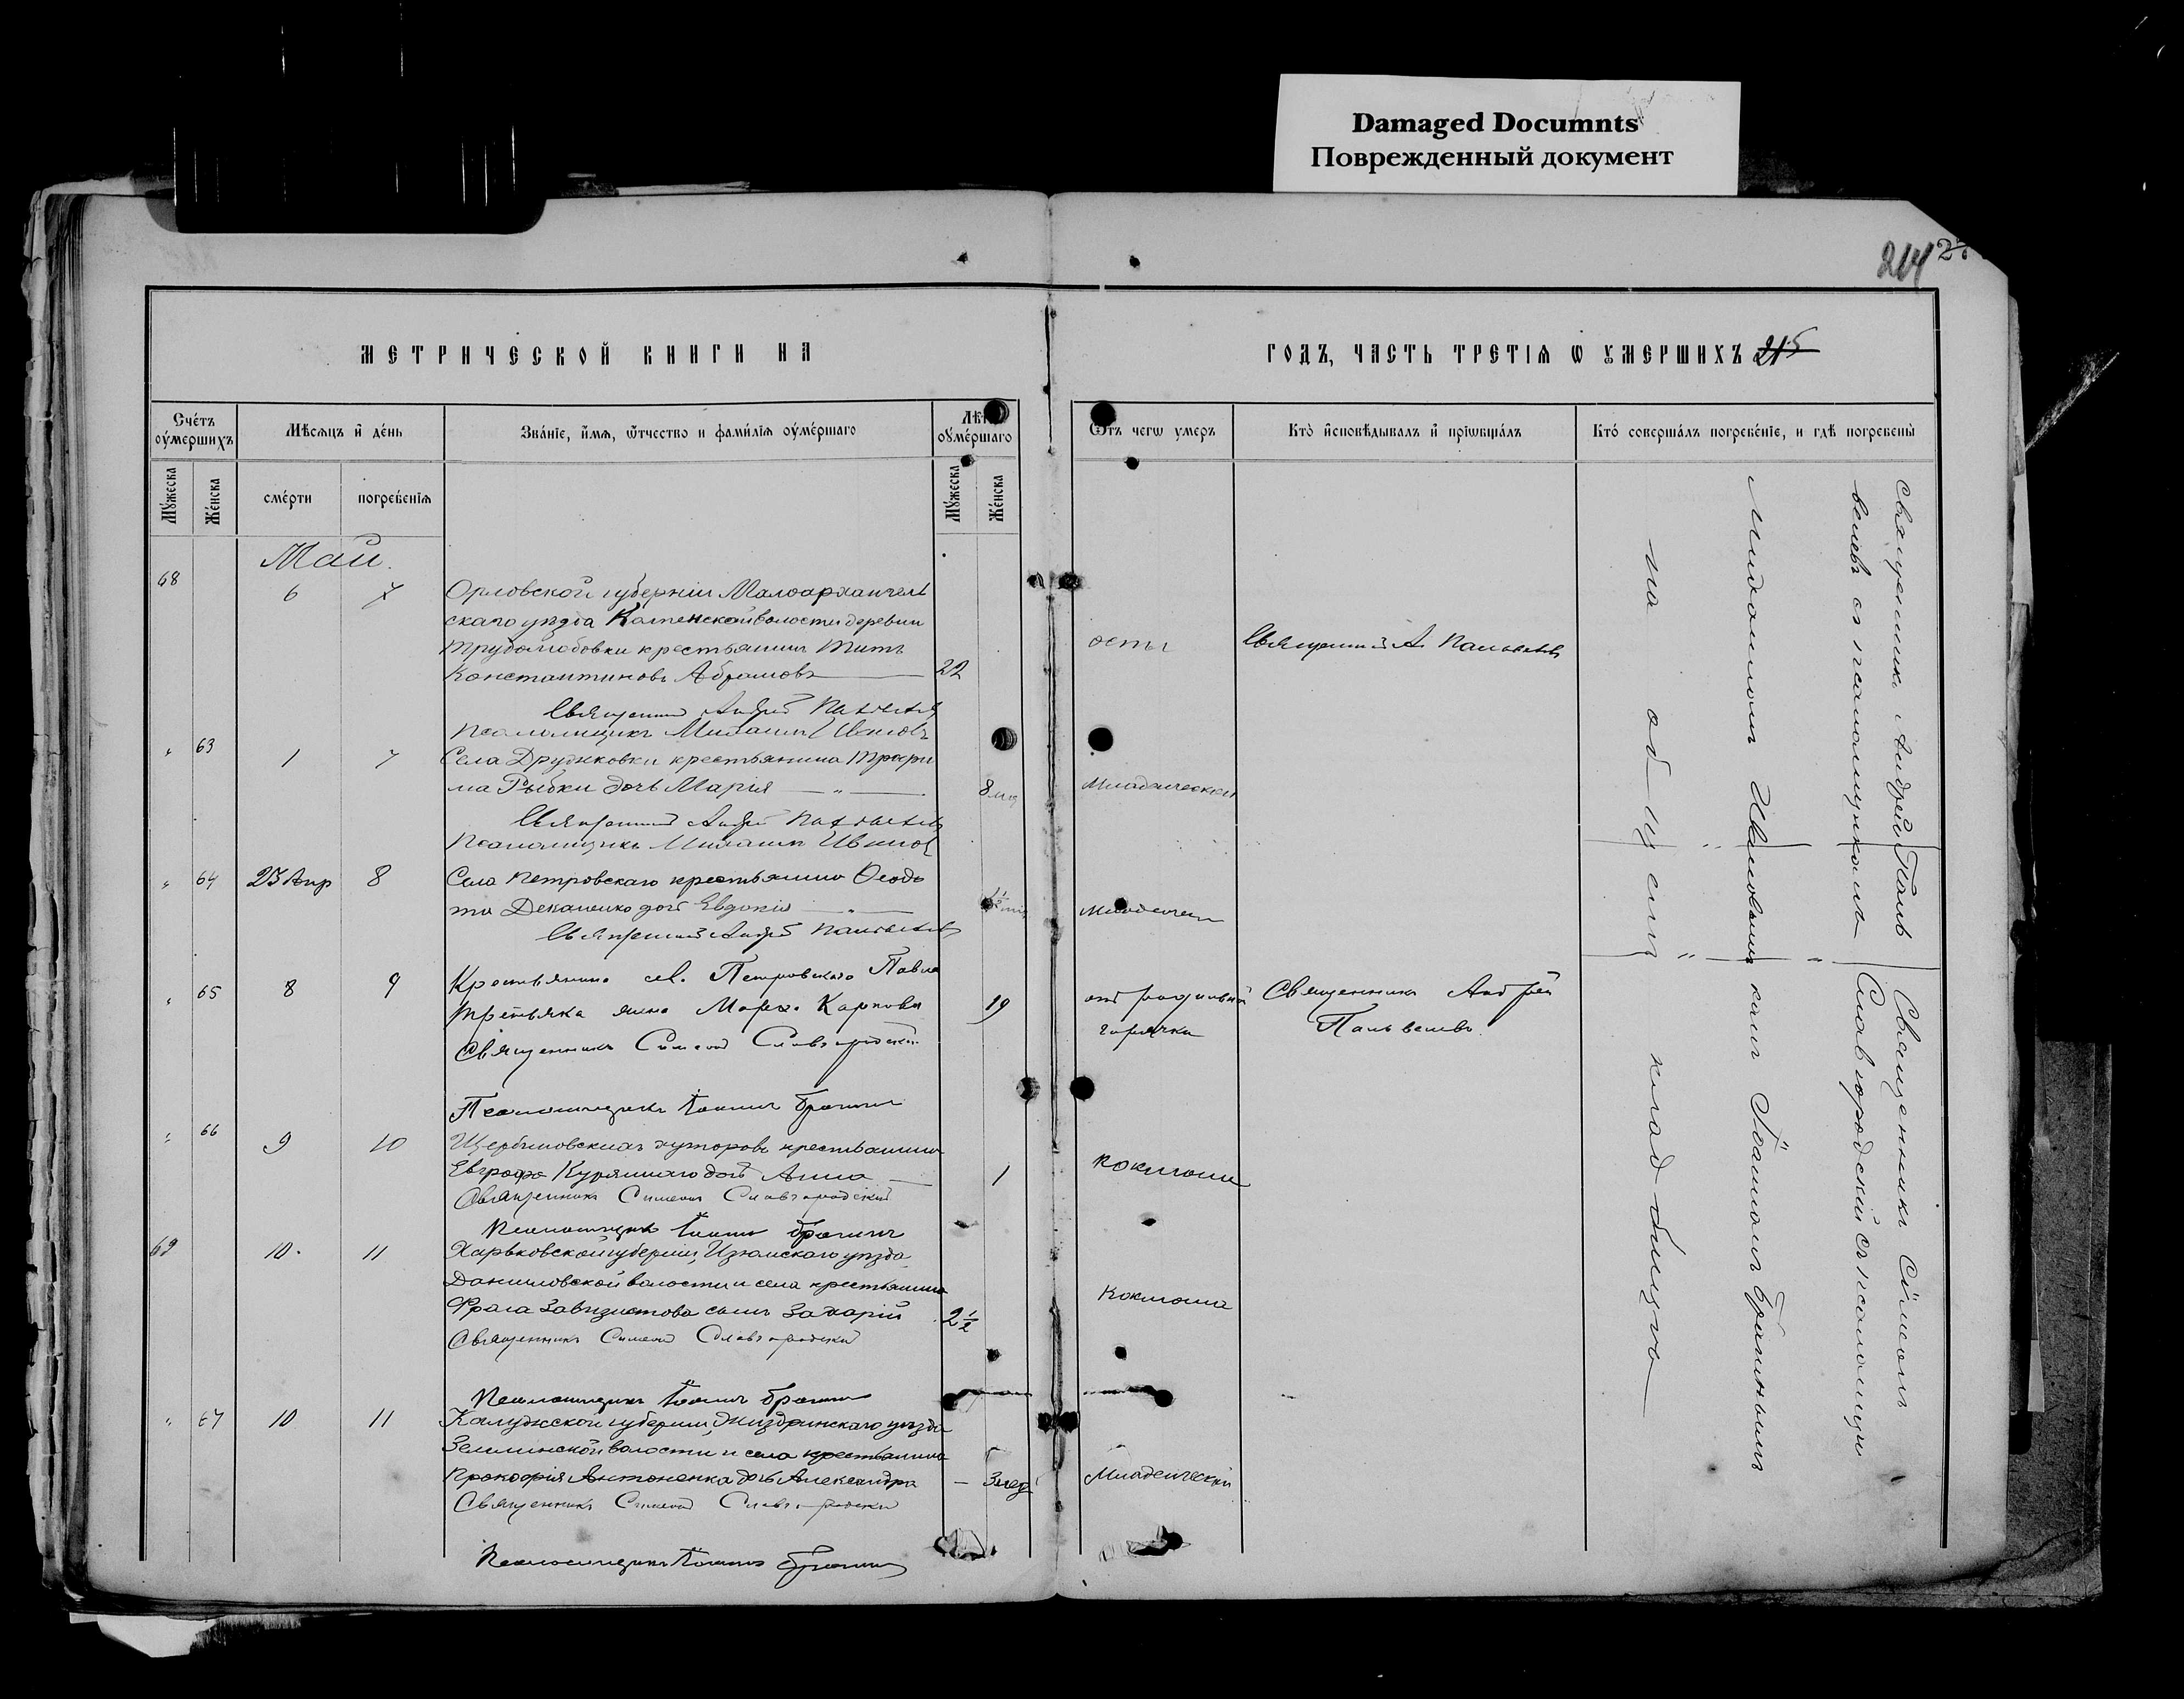 Damaged Documnts
Поврежденный документ
214
МЕТРИЧЕСКОЙ КНИГИ НА
ГОДЪ, ЧАСТЬ ТРЕТІѦ Ѡ УМЕРШИХЪ 215
Счетъ оумершихъ
Мѣсяцъ и день
Званіе, имя, отчество и фамилія оумершаго
Лѣта оумершаго
Отъ чегѡ умеръ
Кто исповѣдывалъ и пріобщалъ
Кто совершалъ погребеніе, и гдѣ погребены
Мужеска
Женска
смерти
погребенія
Мужеска
Женска
Май.
68 6 7 Орловской губерніи Малоархангель
скаго уѣзда Каменской волости деревни
Трудолюбовки крестьянинъ Титъ
Константиновъ Абрамовъ 22 оспы Священникъ А.
Священникъ Андрей
Псаломщикъ Ивановъ
" 63 1 7 Села Дружковки крестьянина Трофи
ма Рыбки дочь Марія — " — 8 Младенческой
Священникъ Андрей
Псаломщикъ Ивановъ
" 64 23 Апр 8 Села Петровскаго крестьянина Ѳеодо
та Деканенко дочь Евдокія — " —
Священникъ Андрей
" 65 8 9 Крестьянина сел. Петровскаго Павла
Третьяка жена Марѳа Карпова 19 отъ родильной Священникъ Андрей
горячки
Священникъ Симеонъ Славгородскій
Псаломщикъ Іоаннъ Брагинъ
" 66 9 10 Щербиновскихъ хуторовъ крестьянина
Евграфа дочь Анна — 1 коклюша
Священникъ Симеонъ Славгородскій
Псаломщикъ Іоаннъ Брагинъ
69 10. 11 Харьковской губерніи, Изюмскаго уѣзда
Даниловской волости и села крестьянина
сынъ Захарій 2 1/2 Коклюша
Священникъ Симеонъ Славгородскій
Псаломщикъ Іоаннъ Брагинъ
" 67 10 11 Калужской губерніи, Жиздринскаго уѣзда
волости и села крестьянина
Прокофія Антоненка дочь Александра — 3 нед Младенческой
Священникъ Симеонъ Славгородскій
Псаломщикъ Іоаннъ Брагинъ
Священникъ Андрей
съ псаломщикомъ
Ивановымъ
Священникъ Сѵмеонъ
Славгородскій съ псаломщи
комъ Іоанномъ Брагинымъ
на общемъ кладбищѣ